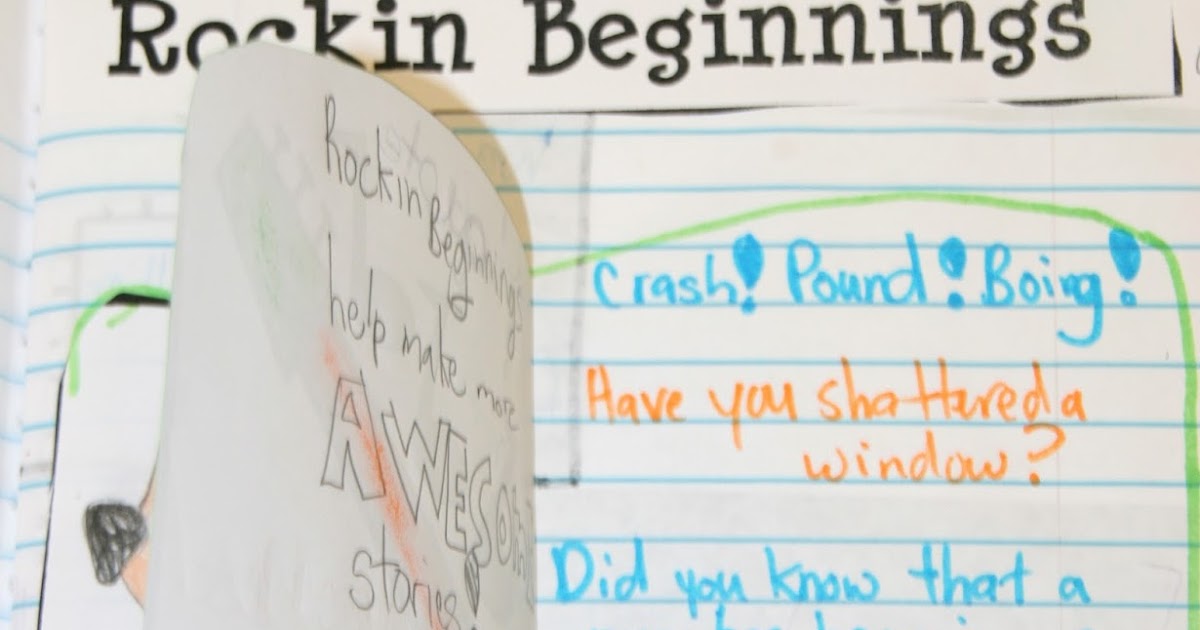 Rockin Beginnings
Rockin Beginnings
help make more
AWESOME
stories!
Crash! Pound! Boing!
Have you shattured a
window?
Did you know that a